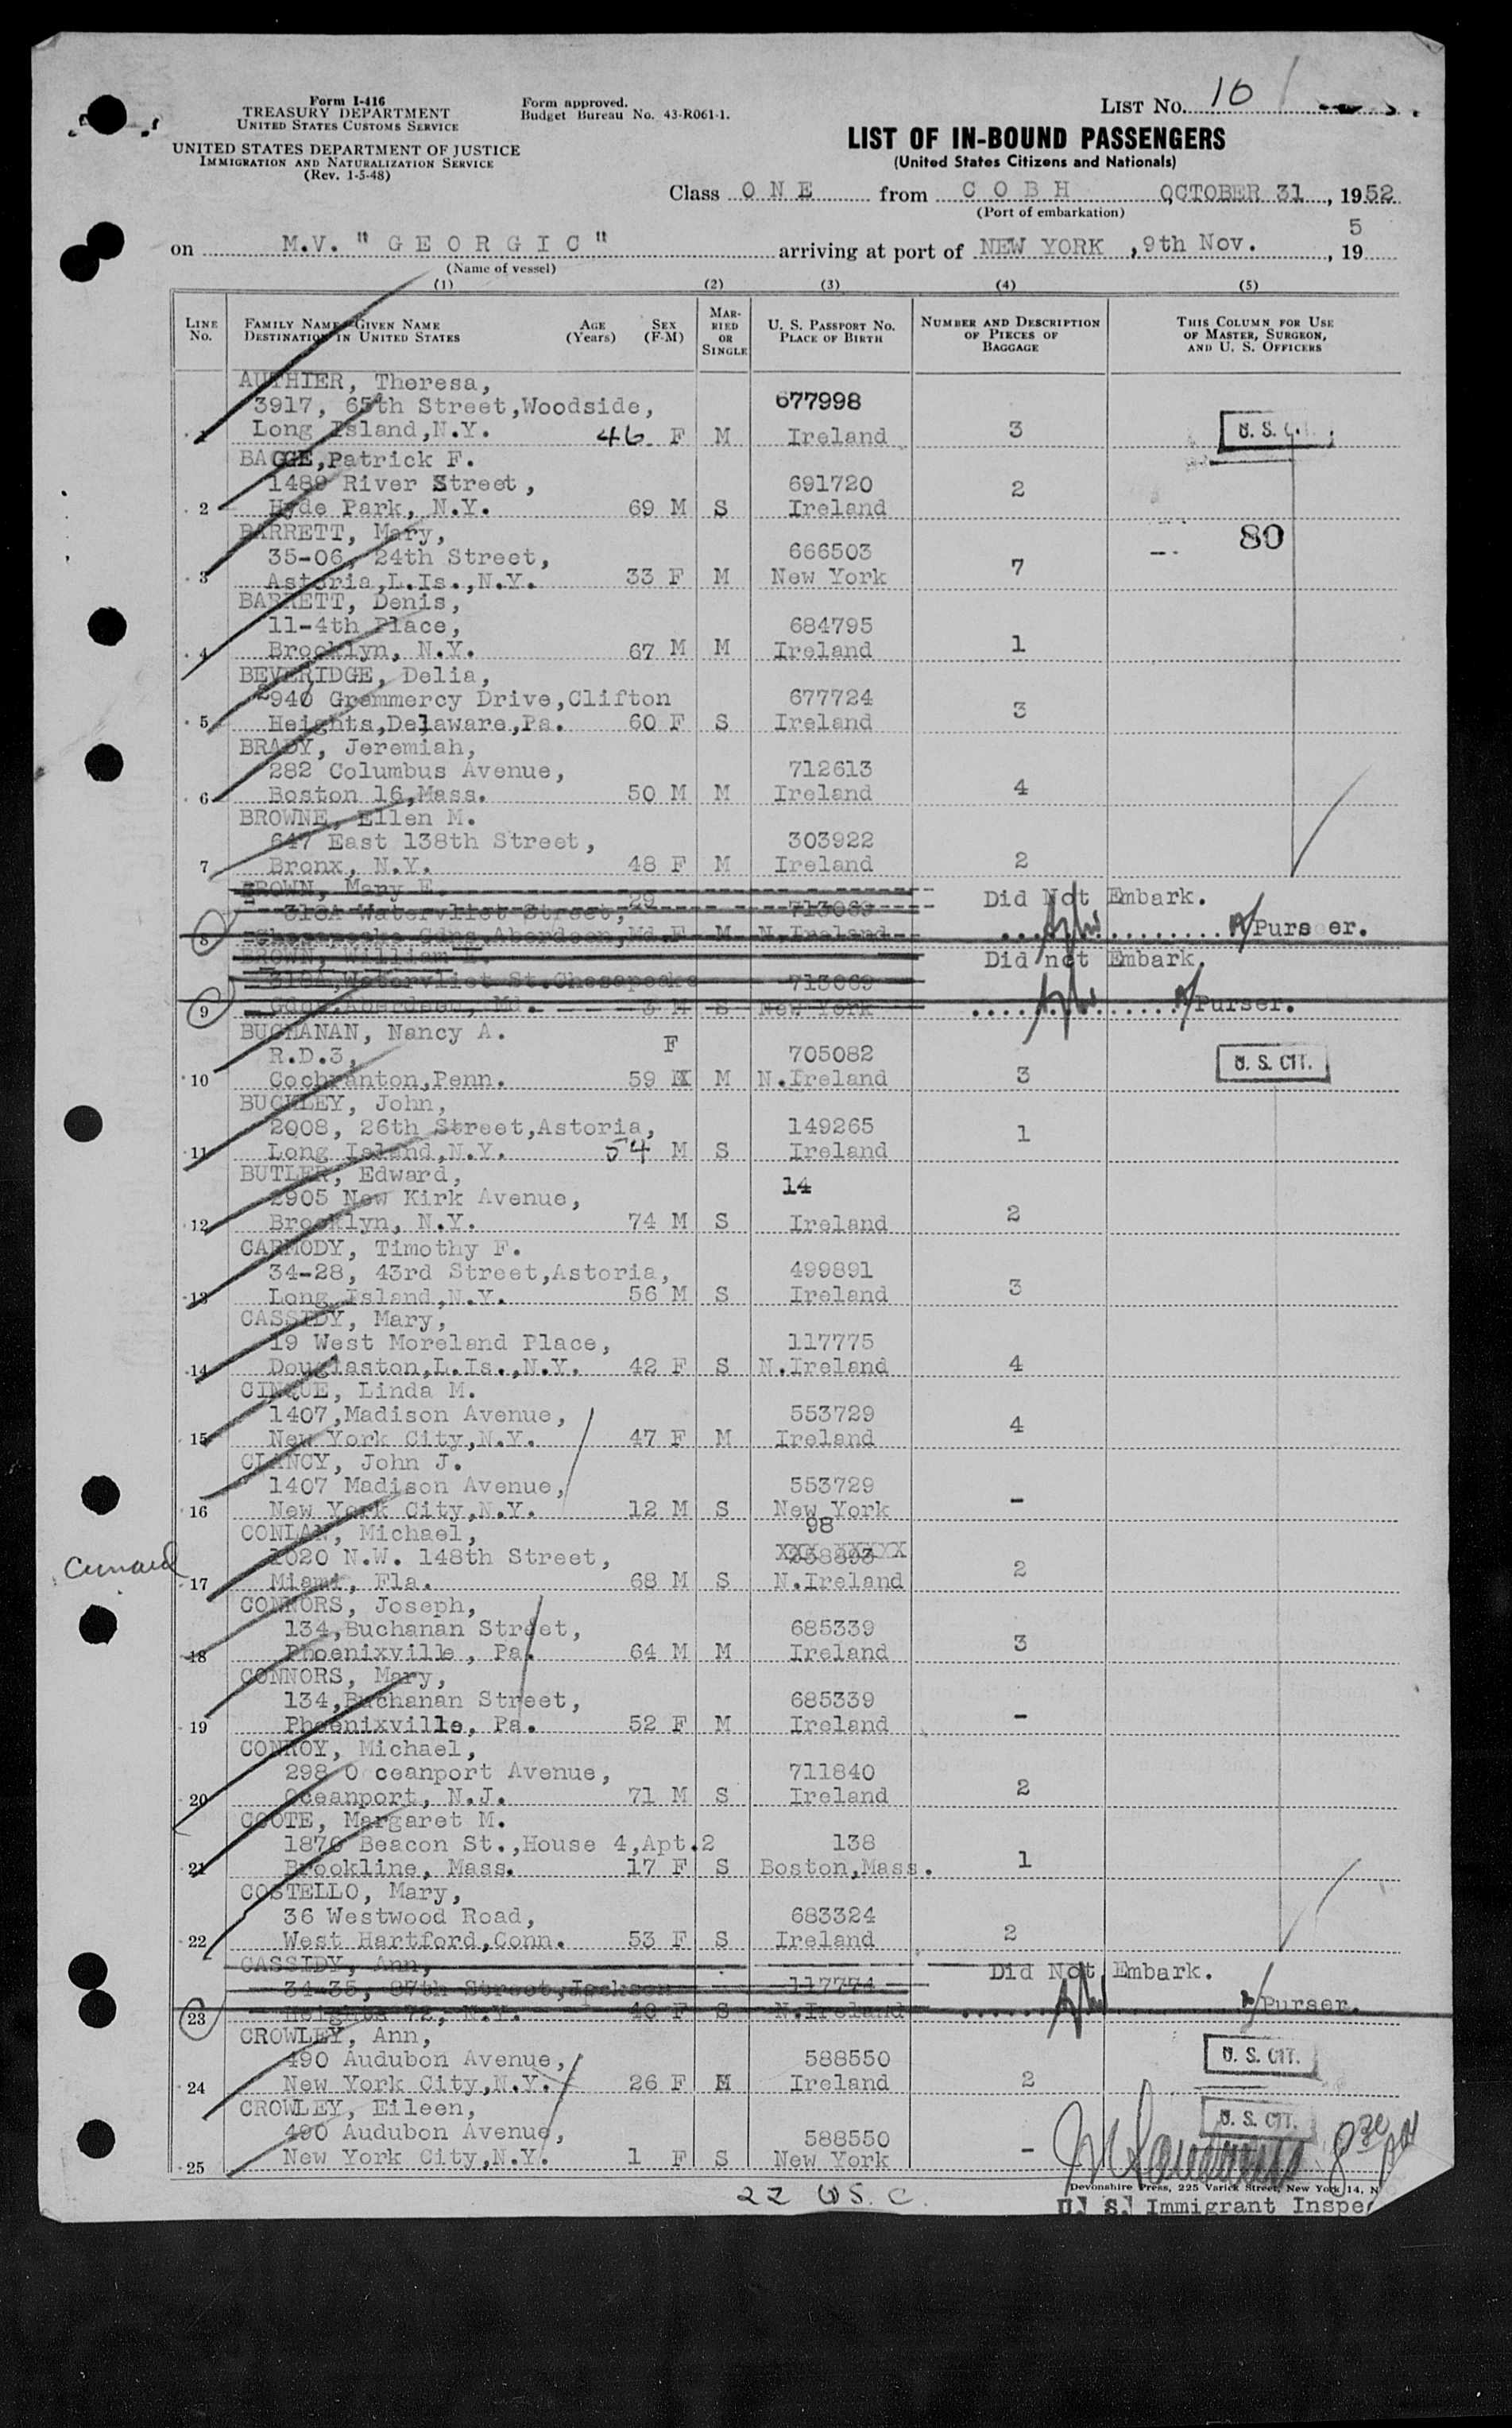 Form I-416
TREASURY DEPARTMENT
UNITED STATES CUSTOMS SERVICE
UNITED STATES DEPARTMENT OF JUSTICE
IMMIGRATION AND NATURALIZATION SERVICE
(Rev. 1-5-48)
Form approved.
Budget Bureau No. 43-R061-1.
LIST No. 10
LIST OF IN-BOUND PASSENGERS
(United States Citizens and Nationals)
Class ONE from COBH OCTOBER 31, 1952
(Port of embarkation)
on M.V. "GEORGIC" arriving at port of NEW YORK, 9th Nov., 195
(Name of vessel)
(1) (2) (3) (4) (5)
LINE No. FAMILY NAME—GIVEN NAME DESTINATION IN UNITED STATES AGE (Years) SEX (F-M) MARRIED OR SINGLE U. S. PASSPORT No. PLACE OF BIRTH NUMBER AND DESCRIPTION OF PIECES OF BAGGAGE THIS COLUMN FOR USE OF MASTER, SURGEON, AND U. S. OFFICERS
AUTHIER, Theresa,
3917, 65th Street,Woodside, 677998
1 Long Island,N.Y. 46 F M Ireland 3 U. S. C
BAGGE,Patrick F.
1489 River Street, 691720
2 Hyde Park, N.Y. 69 M S Ireland 2
BARRETT, Mary, 80
35-06, 24th Street, 666503
3 Astoria,L.Is.,N.Y. 33 F M New York 7
BARRETT, Denis,
11-4th Place, 684795
4 Brooklyn, N.Y. 67 M M Ireland 1
BEVERIDGE, Delia,
940 Grammercy Drive,Clifton 677724
5 Heights,Delaware,Pa. 60 F S Ireland 3
BRADY, Jeremiah,
282 Columbus Avenue, 712613
6 Boston 16,Mass. 50 M M Ireland 4
BROWNE, Ellen M.
647 East 138th Street, 303922
7 Bronx, N.Y. 48 F M Ireland 2
BROWN, Mary E. 29 Did Not Embark.
318A Watervliet Street, 713069
8 Chesapeake Gdns,Aberdeen,Md. F M N.Ireland Purser.
BROWN, William Did not Embark.
318A,Watervliet St.Chesapeake 713069
9 Gdns,Aberdeen, Md. 3 M S New York Purser.
BUCHANAN, Nancy A.
R.D.3, F 705082
10 Cochranton,Penn. 59 M M N.Ireland 3 U. S. CIT.
BUCKLEY, John,
2008, 26th Street,Astoria, 149265
11 Long Island,N.Y. 54 M S Ireland 1
BUTLER, Edward,
2905 New Kirk Avenue, 14
12 Brooklyn, N.Y. 74 M S Ireland 2
CARMODY, Timothy F.
34-28, 43rd Street,Astoria, 499891
13 Long Island,N.Y. 56 M S Ireland 3
CASSIDY, Mary,
19 West Moreland Place, 117775
14 Douglaston,L.Is.,N.Y. 42 F S N.Ireland 4
CINQUE, Linda M.
1407,Madison Avenue, 553729
15 New York City,N.Y. 47 F M Ireland 4
CLANCY, John J.
1407 Madison Avenue, 553729
16 New York City,N.Y. 12 M S New York -
CONLAN, Michael, 98
Cunard 1020 N.W. 148th Street,
17 Miami, Fla. 68 M S N.Ireland 2
CONNORS, Joseph,
134,Buchanan Street, 685339
18 Phoenixville, Pa. 64 M M Ireland 3
CONNORS, Mary,
134,Buchanan Street, 685339
19 Phoenixville, Pa. 52 F M Ireland -
CONROY, Michael,
298 Oceanport Avenue, 711840
20 Oceanport, N.J. 71 M S Ireland 2
COOTE, Margaret M.
1870 Beacon St.,House 4,Apt.2 138
21 Brookline, Mass. 17 F S Boston,Mass. 1
COSTELLO, Mary,
36 Westwood Road, 683324
22 West Hartford,Conn. 53 F S Ireland 2
CASSIDY, Ann, Did Not Embark.
34-35, 87th Street,Jackson 117774
23 Heights 72, N.Y. 40 F S N.Ireland Purser.
CROWLEY, Ann,
490 Audubon Avenue, 588550 U. S. CIT.
24 New York City,N.Y. 26 F M Ireland 2
CROWLEY, Eileen, U. S. CIT.
490 Audubon Avenue, 588550
25 New York City,N.Y. 1 F S New York -
Devonshire Press, 225 Varick Street, New York 14, N
22 U.S.C.
U. S. Immigrant Inspe